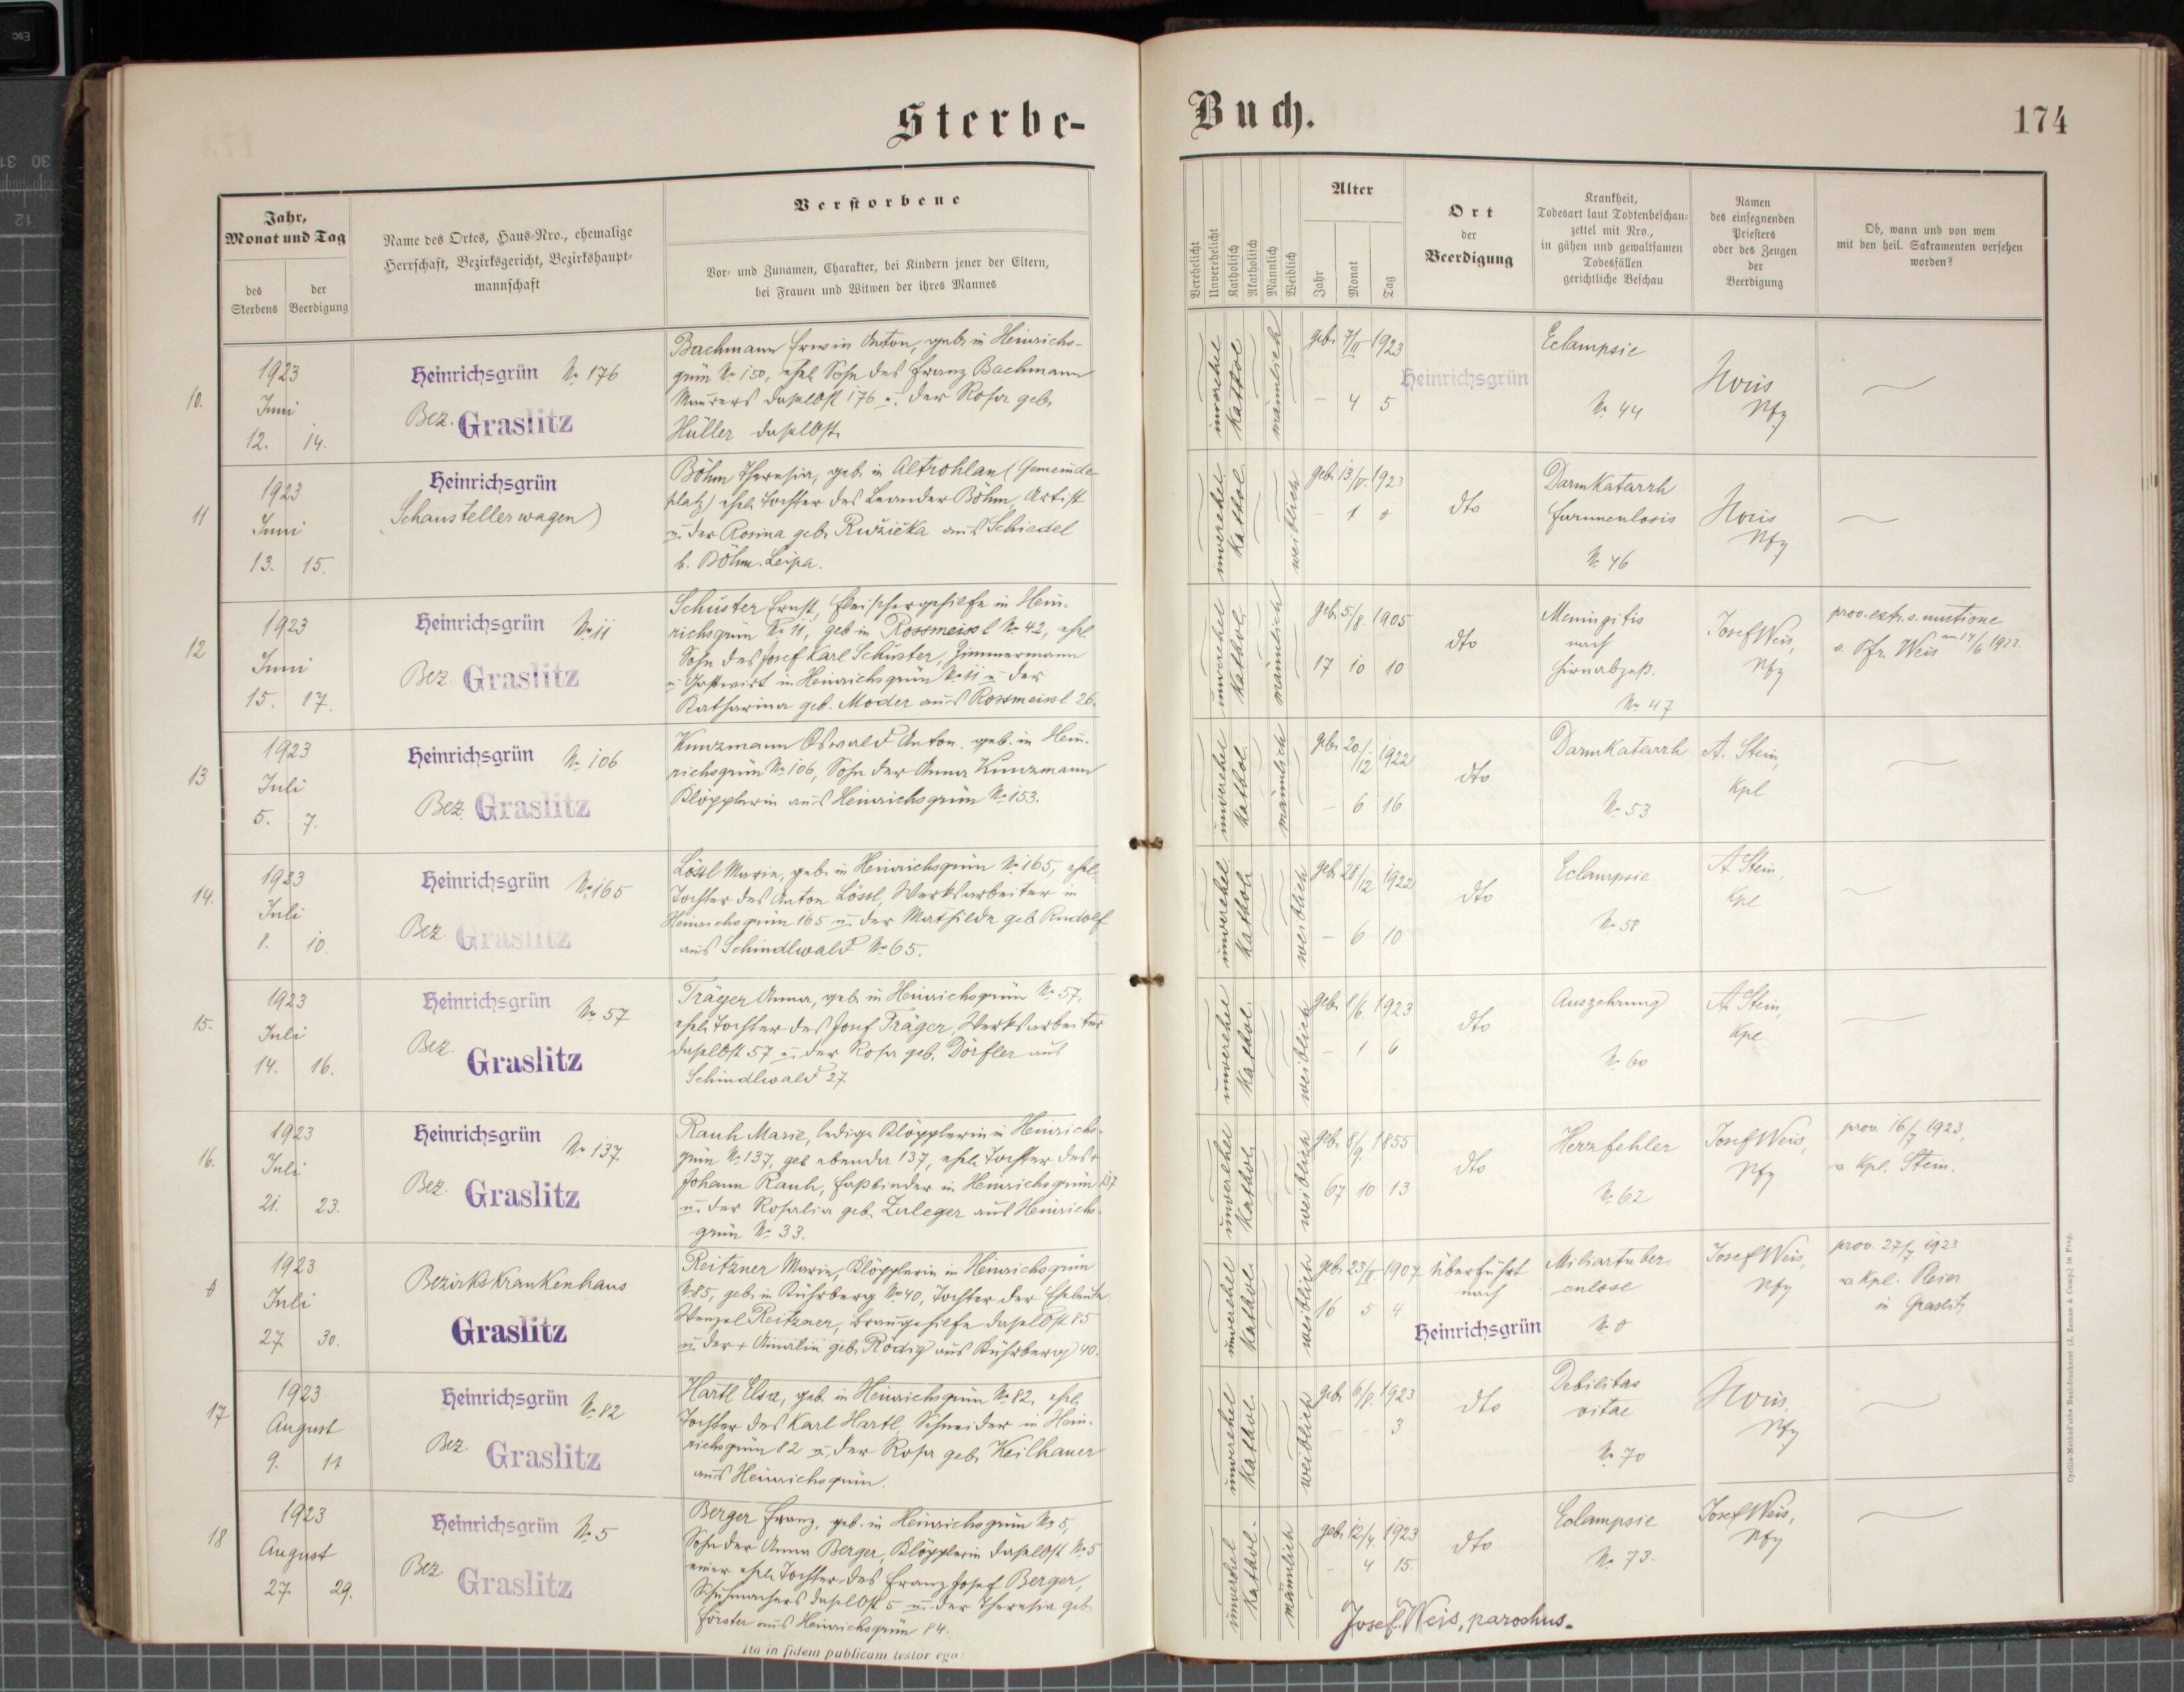 Esc
Sterbe-
Jahr,
Monat und Tag
des
Sterbens
der
Beerdigung
Name des Ortes, Haus-Nro., ehemalige
Herrschaft, Bezirksgericht, Bezirkshaupt-
mannschaft
Verstorbene
Vor- und Zunamen, Charakter, bei Kindern jener der Eltern,
bei Frauen und Witwen der ihres Mannes
10.
1923
Juni
12. 14.
Heinrichsgrün № 176
Bez. Graslitz
Bachmann Erwin Anton, geb. in Heinrichs-
grün № 150, ehel. Sohn des Franz Bachmann
Maurers daselbst 176 u. der Rosa geb.
Hüller daselbst.
11
1923
Juni
13. 15.
Heinrichsgrün
(Schaustellerwagen)
Böhm Theresia, geb. in Altrohlau (Gemeinde-
platz) ehel. Tochter des Leander Böhm, Artist
u. der Rosina geb. Ružička aus Schiedel
b. Böhm. Leipa.
12
1923
Juni
15. 17.
Heinrichsgrün № 11
Bez. Graslitz
Schuster Ernst, Fleischergehilfe in Hein-
richsgrün № 11, geb. in Rossmeissl № 42, ehel.
Sohn des Josef Karl Schuster, Zimmermann
u. Gastwirt in Heinrichsgrün № 11 u. der
Katharina geb. Moder aus Rossmeissl 26.
13
1923
Juli
5. 7.
Heinrichsgrün № 106
Bez. Graslitz
Kunzmann Oswald Anton, geb. in Hein-
richsgrün № 106, Sohn der Anna Kunzmann
Klöpplerin aus Heinrichsgrün № 153.
14.
1923
Juli
8. 10.
Heinrichsgrün № 165
Bez. Graslitz
Lössl Marie, geb. in Heinrichsgrün № 165, ehel.
Tochter des Anton Lössl, Werksarbeiter in
Heinrichsgrün 165 u. der Mathilde geb. Rudolf
aus Schindlwald № 65.
15.
1923
Juli
14. 16.
Heinrichsgrün № 57
Bez. Graslitz
Träger Anna, geb. in Heinrichsgrün № 57,
ehel. Tochter des Josef Träger, Werksarbeiter
daselbst 57 u. der Rosa geb. Dörfler aus
Schindlwald 27.
16.
1923
Juli
21. 23.
Heinrichsgrün № 137
Bez. Graslitz
Rauh Marie, ledige Klöpplerin in Heinrichs-
grün № 137, geb. ebenda 137, ehel. Tochter des +
Johann Rauh, Faßbinder in Heinrichsgrün 137
u. der Rosalia geb. Zuleger aus Heinrichs-
grün № 33.
0
1923
Juli
27 30.
Bezirkskrankenhaus
Graslitz
Reitzner Marie, Klöpplerin in Heinrichsgrün
№ 85, geb. in Kührberg № 40, Tochter der Eheleute
Wenzel Reitzner, Braugehilfe daselbst 85
u. der + Amalia geb. Rödig aus Kührberg 40.
17
1923
August
9. 11
Heinrichsgrün № 82
Bez. Graslitz
Hartl Elsa, geb. in Heinrichsgrün № 82, ehel.
Tochter des Karl Hartl, Schneider in Hein-
richsgrün 82 u. der Rosa geb. Keilhauer
aus Heinrichsgrün.
18
1923
August
27. 29.
Heinrichsgrün № 5
Bez. Graslitz
Berger Franz, geb. in Heinrichsgrün № 5,
Sohn der Anna Berger, Klöpplerin daselbst № 5
einer ehel. Tochter des Franz Josef Berger,
Schuhmachers daselbst 5 u. der Theresia geb.
Förster aus Heinrichsgrün 84.
Ita in fidem publicam testor ego:
Buch.
174
Verehelicht
Unverehelicht
Katholisch
Akatholisch
Männlich
Weiblich
Alter
Jahr
Monat
Tag
Ort
der
Beerdigung
Krankheit,
Todesart laut Todtenbeschau-
zettel mit Nro.,
in gähen und gewaltsamen
Todesfällen
gerichtliche Beschau
Namen
des einsegnenden
Priesters
oder des Zeugen
der
Beerdigung
Ob, wann und von wem
mit den heil. Sakramenten versehen
worden?
unverehel
kathol
männlich
geb. 7/II 1923
– 4 5
Heinrichsgrün
Eclampsie
№ 44
Pfr
unverehel
kathol
weiblich
geb. 13/V. 1923
– 1 0
dto
Darmkatarrh
furunculosis
№ 46
Pfr
unverehel
kathol.
männlich
geb. 5/8. 1905
17 10 10
dto
Meningitis
nach
Hirnabszeß.
№ 47
Josef Weis,
Pfr
prov. extr. unctione
v. Pfr. Weis am 14/6 1923.
unverehel
kathol.
männlich
geb. 20/12 1922
– 6 16
dto
Darmkatarrh
№ 53
A. Stein,
Kpl
unverehel
kathol.
weiblich
geb. 28/12 1922
– 6 10
dto
Eclampsie
№ 58
A. Stein,
Kpl
unverehel
kathol.
weiblich
geb. 8/6. 1923
– 1 6
dto
Auszehrung
№ 60
A. Stein,
Kpl
unverehel
kathol.
weiblich
geb. 8/9. 1855
67 10 13
dto
Herzfehler
№ 62
Josef Weis,
Pfr
prov. 16/7 1923,
v. Kpl. Stein.
unverehel
kathol.
weiblich
geb. 23/II 1907
16 5 4
überführt
nach
Heinrichsgrün
Miliartuber
culose
№ 0
Josef Weis,
Pfr
prov. 27/7. 1923
v. Kpl.
in Graslitz
unverehel
kathol.
weiblich
geb. 6/8. 1923
3
dto
Debilitas
vitae
№ 70
Pfr
unverehel
kathol.
männlich
geb. 12/4. 1923
– 4 15.
dto
Eclampsie
№ 73.
Josef Weis,
Pfr
Josef Weis, parochus.